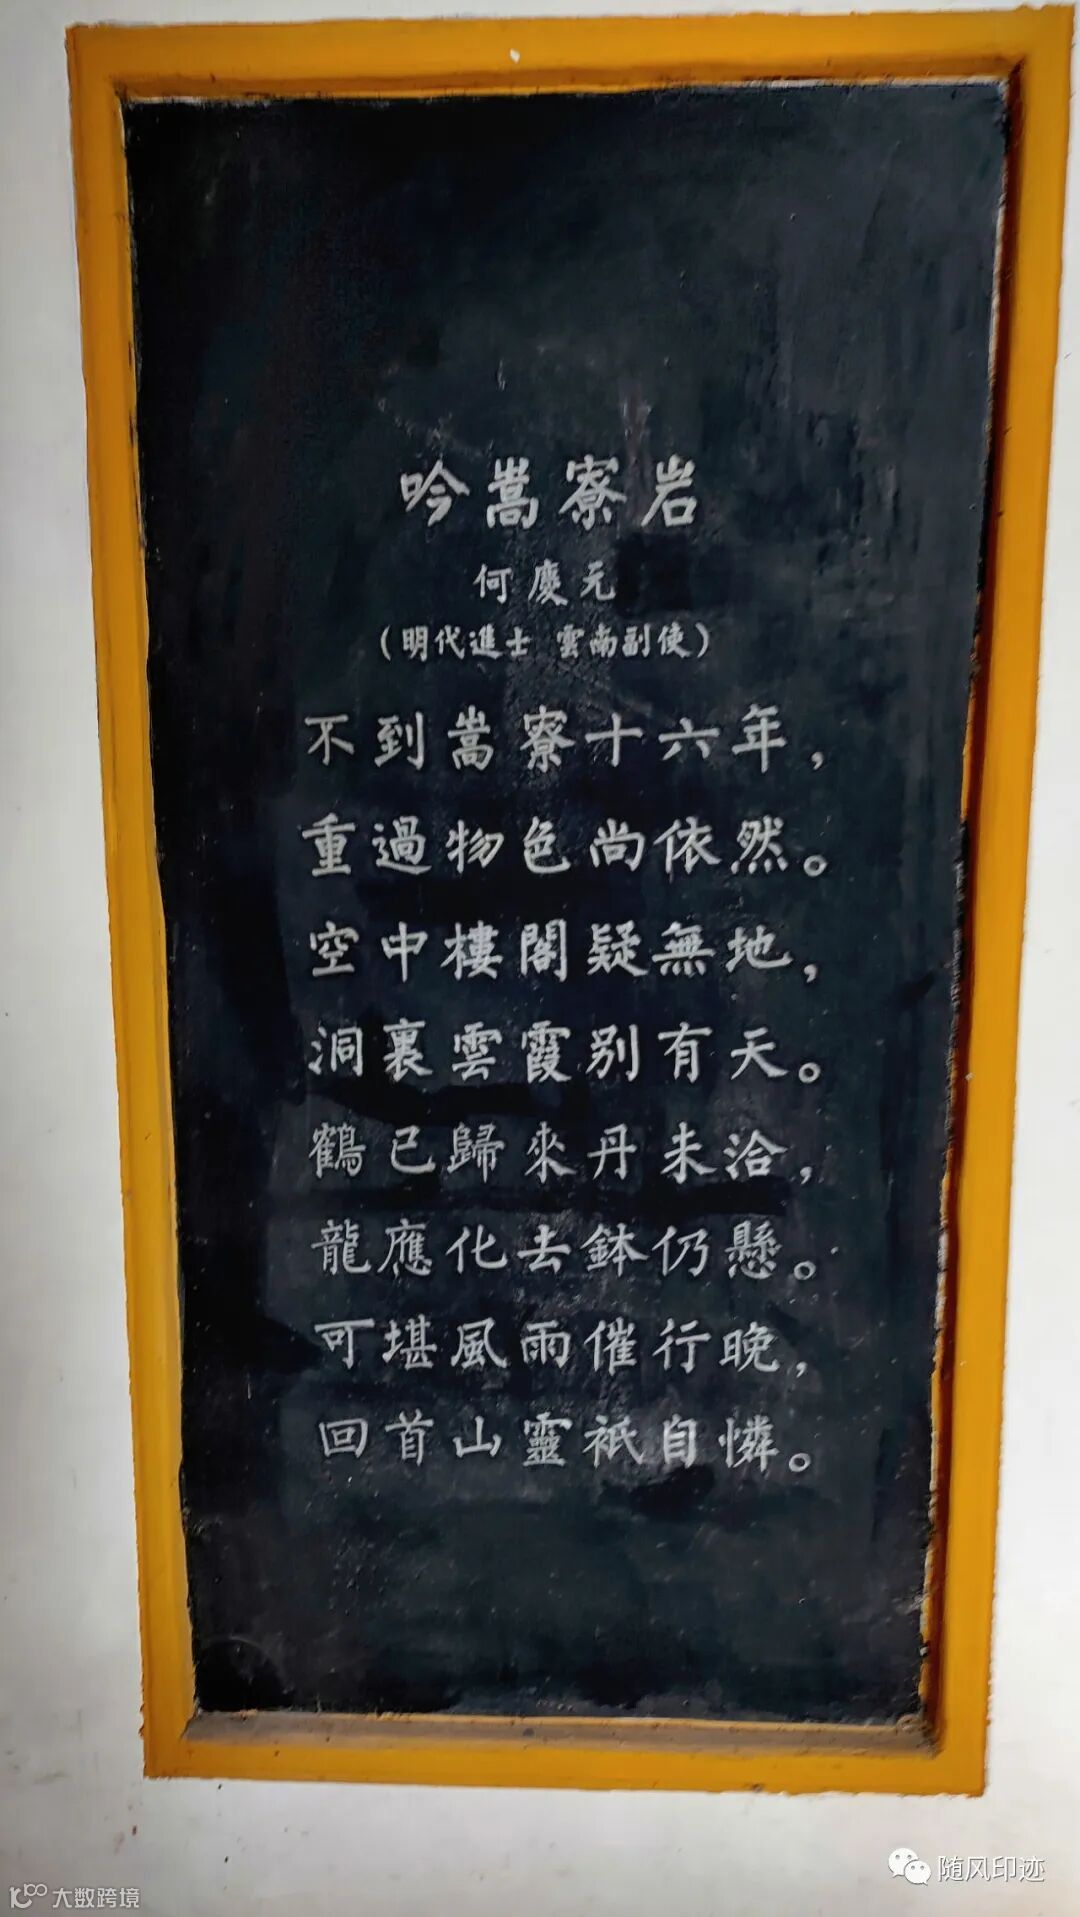 吟嵩寮岩
何慶元
（明代進士 雲南副使）
不到嵩寮十六年，
重過物色尚依然。
空中樓閣疑無地，
洞裏雲霞别有天。
鶴已歸來丹未洽，
龍應化去鉢仍懸。
可堪風雨催行晚，
回首山靈祇自憐。
随风印迹
大数跨境